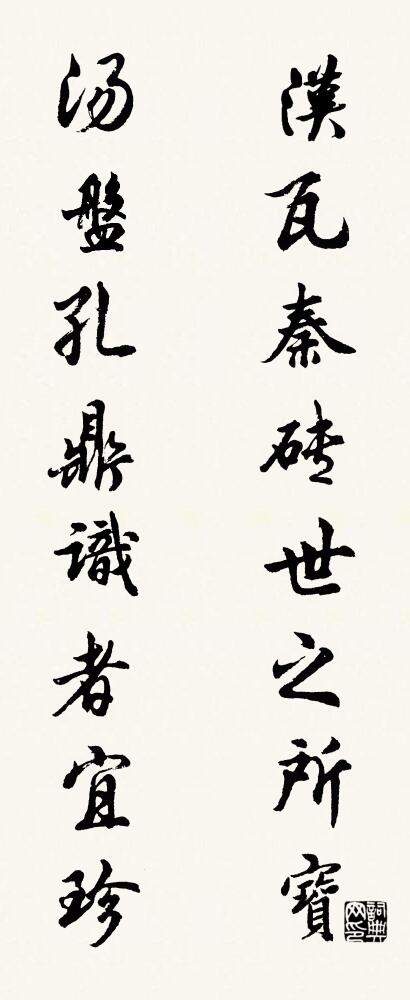 漢瓦秦砖世之所寶
汤盤孔鼎識者宜珍
詞典網印